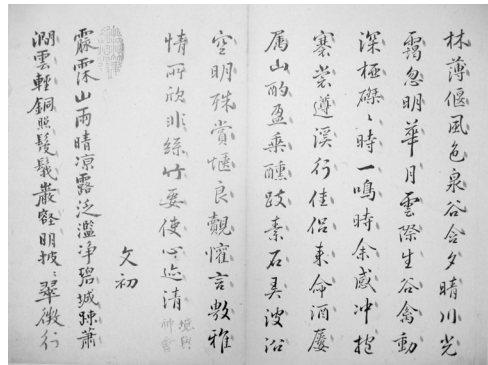 林薄偃風色泉谷含夕晴川光
靄忽明華月雲際生谷禽動
深極磔〻時一鳴時余感沖抱
褰裳遵溪行佳侶命酒屢
屬山酌盈乘醺跂素石弄波沿
空明殊賞愜良覿懽言敷雅
情所欣非絲竹要使心迹清
文初
霢霂山雨晴凉露泛濫净碧城踈蕭
澗雲輕銅照鬢巖壑明披〻翠微行